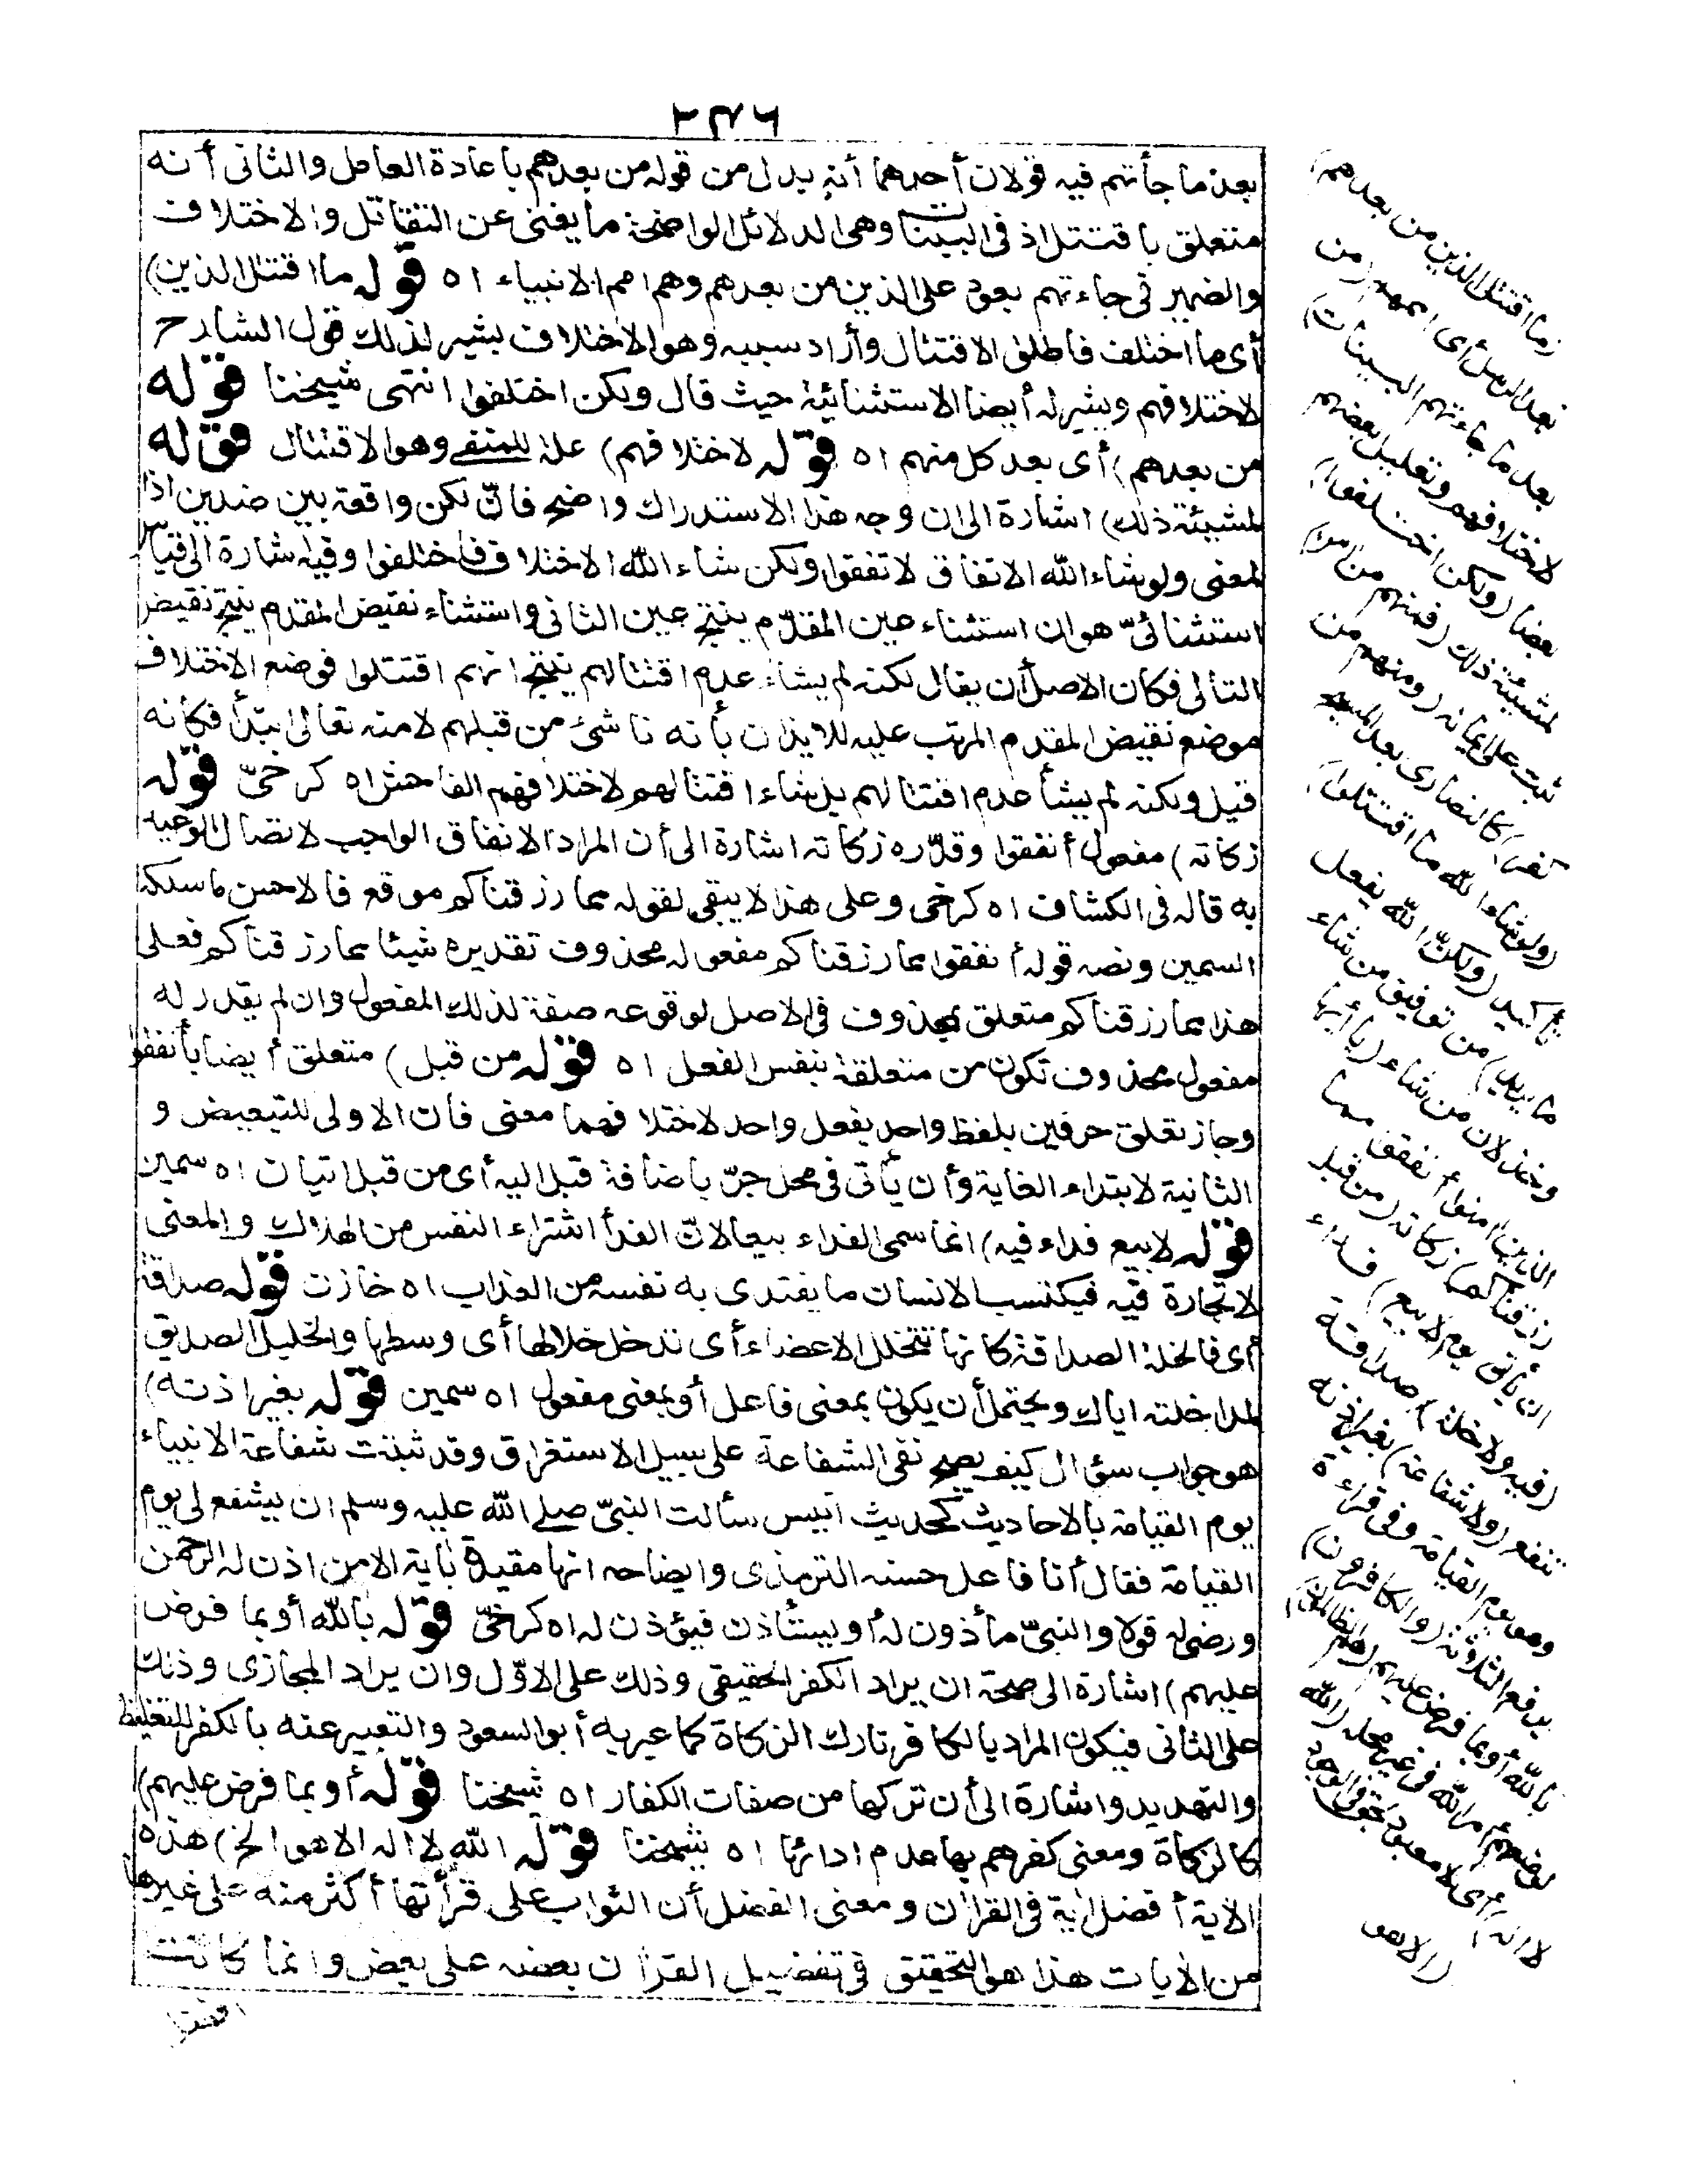 بعد ما جأتهم فيه قولان أحدهما أنه بدل من قوله من بعدهم باعادة العامل والثانى أنه
متعلق باقتتل اذ فى البينات وهى الدلائل الواضحة ما يغنى عن التقاتل والاختلاف
والضمير فى جاءتهم يعود على الذين من بعدهم وهم امم الانبياء اه قوله ما اقتتل الذين)
أى ما اختلف فاطلق الاقتتال وأراد سببه وهو الاختلاف يشير لذلك قول الشارح
لاختلافهم ويشير له أيضا الاستثنائية حيث قال ولكن اختلفوا انتهى شيخنا قوله
من بعدهم) أى بعد كل منهم اه قوله لاختلافهم) علة للمنفى وهو الاقتتال قوله
لمشيئة ذلك) اشارة الى ان وجه هذا الاستدراك واضح فان لكن واقعة بين ضدين اذا
لمعنى ولو شاء الله الاتفاق لاتفقوا ولكن شاء الله الاختلاف فاختلفوا وفيه اشارة الى قياس
استثنائىّ هو ان استثناء عين المقدّم ينتج عين الثانى واستثناء نقيض المقدم ينتج نقيض
التالى فكان الاصل أن يقال لكنه لم يشاء عدم اقتتالهم ينتج انهم اقتتلوا فوضع الاختلاف
موضع نقيض المقدم المرتب عليه للايذان بأنه ناشئ من قبلهم لا منه تعالى ابتدأ فكانه
قيل ولكنه لم يشأ عدم اقتتالهم بل شاء اقتتالهم لاختلافهم الفاحش اه كرخىّ قوله
زكاته) مفعول أنفقوا وقدّره زكاته اشارة الى أن المراد الانفاق الواجب لاتصال الوعيد
به قاله فى الكشاف اه كرخى وعلى هذا لا يبقى لقوله مما رزقناكم موقع فالاحسن ما سلكه
السمين ونصه قوله أنفقوا مما رزقناكم مفعوله محذوف تقديره شيئا مما رزقناكم فعلى
هذا مما رزقناكم متعلق بمحذوف فى الاصل لوقوعه صفة لذلك المفعول وان لم يقدر له
مفعول محذوف تكون من متعلقة بنفس الفعل اه قوله من قبل) متعلق أيضا بأنفقوا
وجاز تعلق حرفين بلفظ واحد بفعل واحد لاختلافهما معنى فان الاولى للتبعيض و
الثانية لابتداء الغاية وأن يأتى فى محل جرّ باضافة قبل اليه أى من قبل اتيان اه سمين
قوله لا بيع فداء فيه) انما سمى الفداء بيعا لانّ الفدأ اشتراء النفس من الهلاك والمعنى
لا تجارة فيه فيكتسب الانسان ما يفتدى به نفسه من العذاب اه خازن قوله صداقة
أى فالخلة الصداقة كانها تتخلل الاعضاء أى تدخل خلالها أى وسطها والخليل الصديق
لمداخلته اياك ويحتمل أن يكون بمعنى فاعل أو بمعنى مفعول اه سمين قوله بغير اذنه)
هو جواب سؤال كيف يصح نفى الشفاعة على سبيل الاستغراق وقد ثبتت شفاعة الانبياء
يوم القيامة بالاحاديث كحديث انيس سألت النبىّ صلى الله عليه وسلم ان يشفع لى يوم
القيامة فقال أنا فاعل حسنه الترمذى وايضاحه انها مقيدة باية الا من اذن له الرحمن
ورضى له قولا والنبىّ مأذون له أو يستأذن فيؤذن له اه كرخىّ قوله بالله أو بما فرض
عليهم) اشارة الى صحة ان يراد الكفر الحقيقى وذلك على الاوّل وان يراد المجازى وذلك
على الثانى فيكون المراد بالكافر تارك الزكاة كما عبر به أبو السعود والتعبير عنه بالكفر للتغليظ
والتهديد واشارة الى أن تركها من صفات الكفار اه شيخنا قوله أو بما فرض عليهم)
كالزكاة ومعنى كفرهم بها عدم ادائها اه شيخنا قوله الله لا اله الا هو الخ) هذه
الاية أفضل اية فى القرآن ومعنى الفضل أن الثواب على قرأتها أكثر منه على غيرها
من الايات هذا هو التحقيق فى تفضيل القرآن بعضه على بعض وانما كانت
(ما اقتتل الذين من بعدهم)
بعد الرسل أى اممهم (من
بعد ما جاءتهم البينات)
لاختلافهم وتضليل بعضهم
بعضا (ولكن اختلفوا)
لمشيئة ذلك (فمنهم من امن)
ثبت على ايمانه (ومنهم من
كفر) كالنصارى بعد المسيح
(ولو شاء الله ما اقتتلوا)
تاكيد (ولكنّ الله يفعل
ما يريد) من توفيق من شاء
وخذلان من شاء (يا أيها
الذين امنوا أنفقوا مما
رزقناكم) زكاته (من قبل
ان يأتى يوم لا بيع) فداء
(فيه ولا خلة) صداقة
تنفع (ولا شفاعة) بغير اذنه
وهو يوم القيامة وفى قراءة
برفع الثلاثة (والكافرون)
بالله أو بما فرض عليهم (هم الظالمون)
لوضعهم أمر الله فى غير محله (الله
لا اله) أى لا معبود بحق فى الوجود
(الا هو